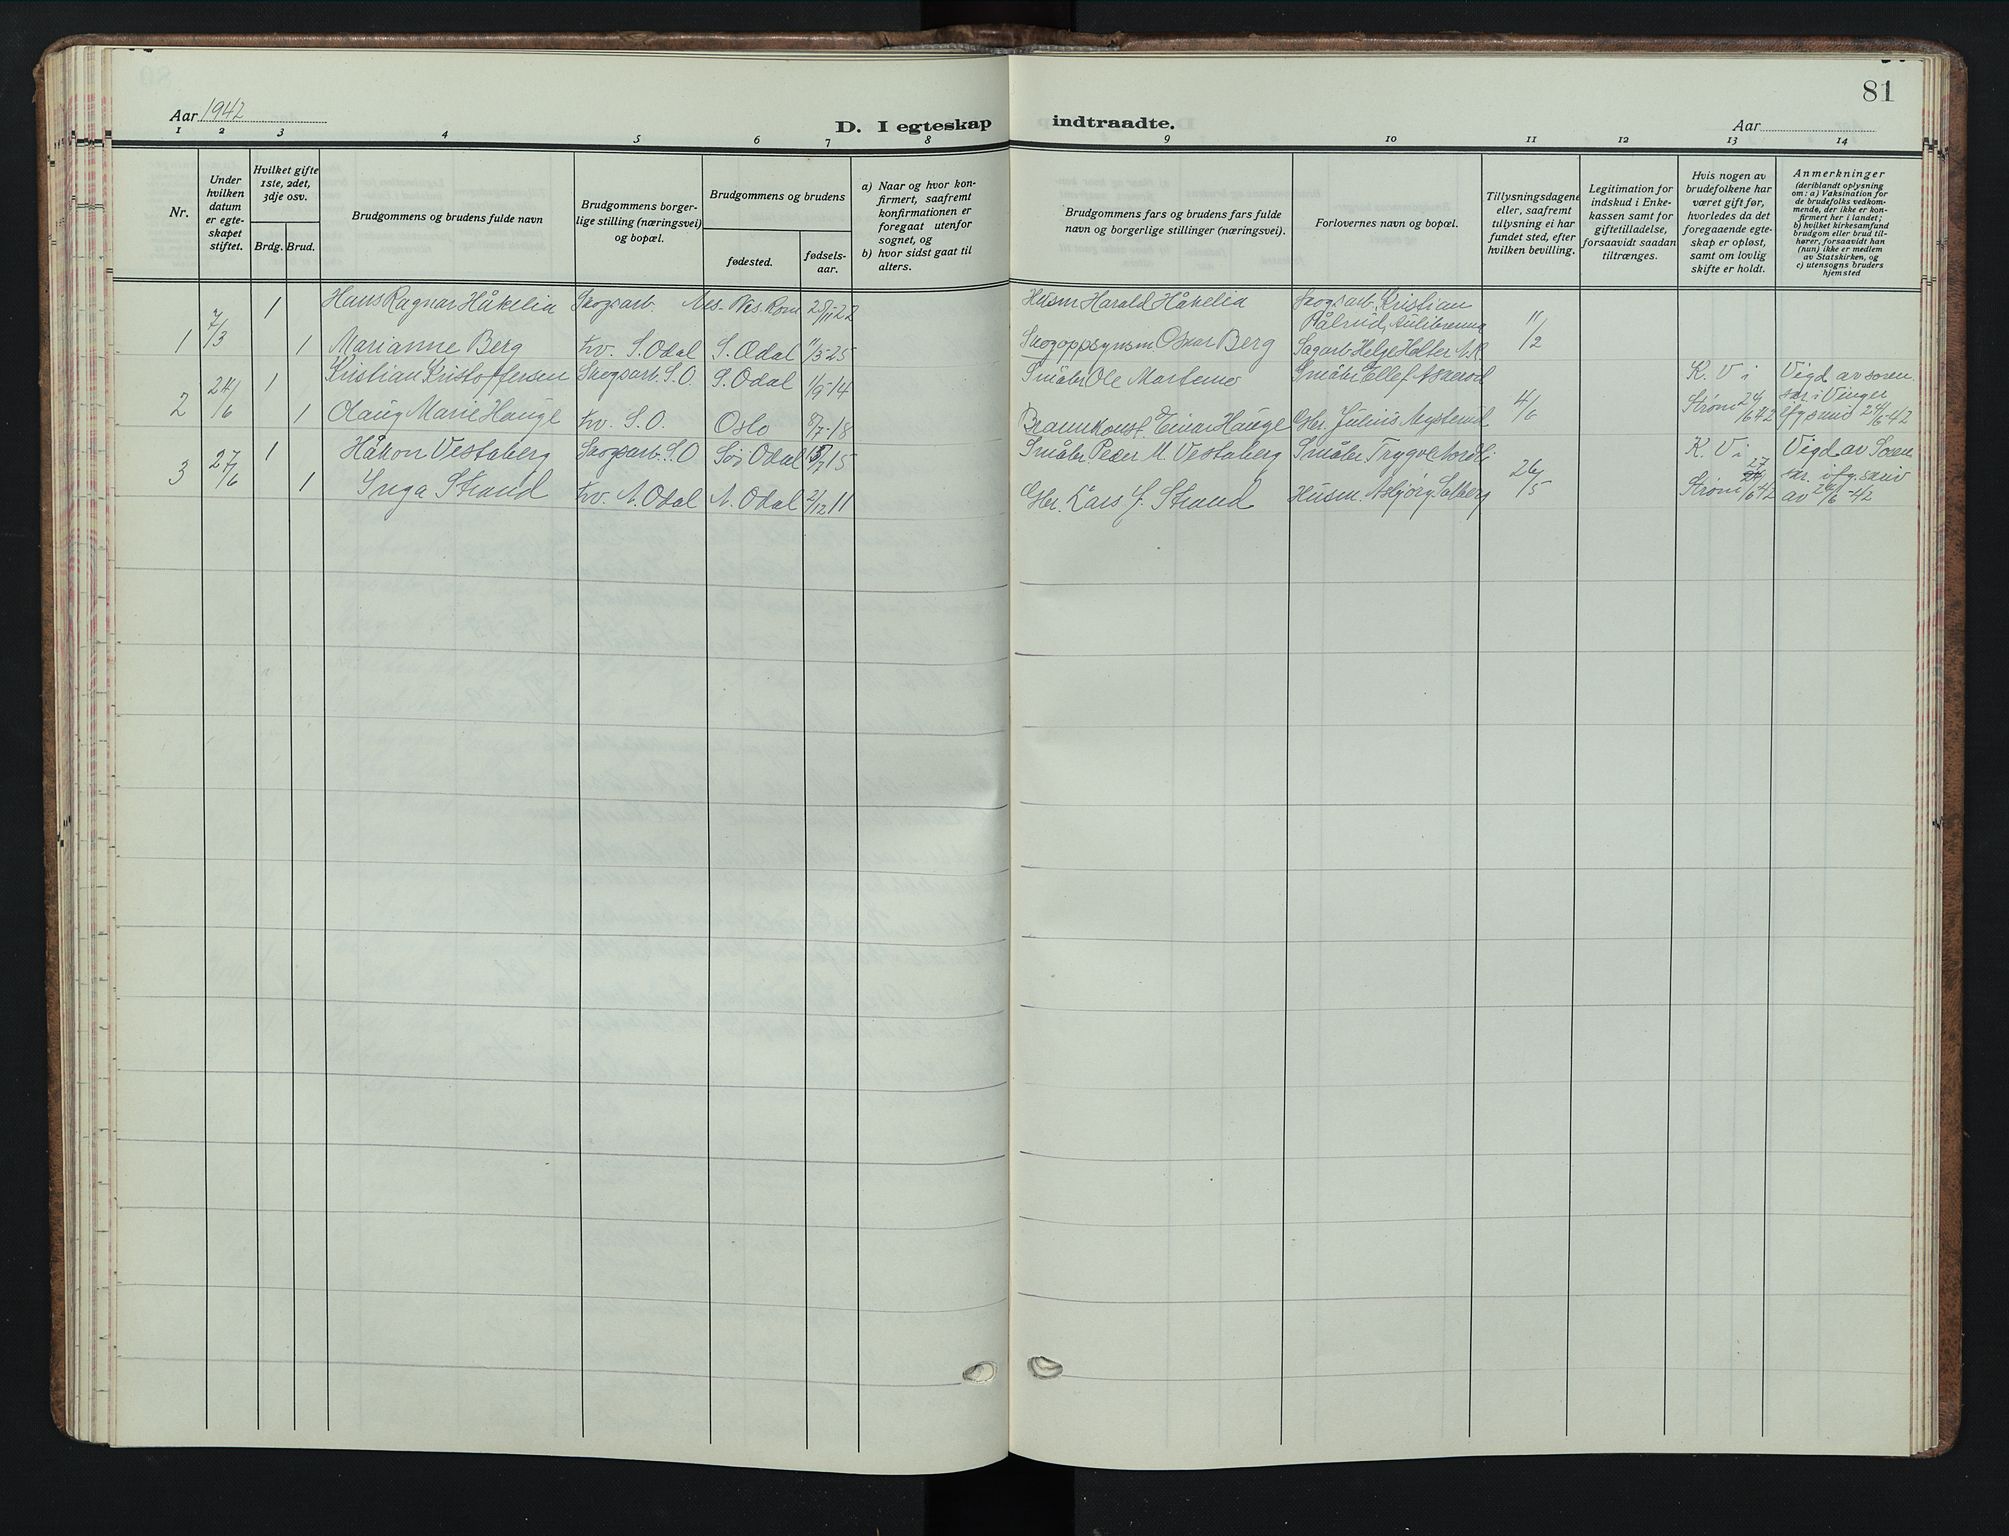 81
Aar 1942
D. I egteskap indtraadte.
Aar
1 2 3 4 5 6 7 8 9 10 11 12 13 14
Nr.
Under hvilken datum er egte-skapet stiftet.
Hvilket gifte 1ste, 2det, 3dje osv.
Brdg. Brud.
Brudgommens og brudens fulde navn
Brudgommens borger-lige stilling (næringsvei) og bopæl.
Brudgommens og brudens
fødested.
fødsels-aar.
a) Naar og hvor kon-firmert, saafremt konfirmationen er foregaat utenfor sognet, og
b) hvor sidst gaat til alters.
Brudgommens fars og brudens fars fulde navn og borgerlige stillinger (næringsvei).
Forlovernes navn og bopæl.
Tillysningsdagene eller, saafremt tillysning ei har fundet sted, efter hvilken bevilling.
Legitimation for indskud i Enke-kassen samt for giftetilladelse, forsaavidt saadan tiltrænges.
Hvis nogen av brudefolkene har været gift før, hvorledes da det foregaaende egte-skap er opløst, samt om lovlig skifte er holdt.
Anmerkninger
(deriblandt oplysning om: a) Vaksination for de brudefolks vedkom-mende, der ikke er kon-firmert her i landet; b) hvilket kirkesamfund brudgom eller brud til-hører, forsaavidt han (hun) ikke er medlem av Statskirken, og c) utensogns bruders hjemsted
1 7/3 1 Hans Ragnar Håkelia Skogsarb. Nes. Rom 25/11-22 Husm Harald Håkelia Skogsarb. Kristian Pålrud, Aulibrenna 11/2
1 Marianne Berg Fv. S. Odal S. Odal 11/3-25 Skogoppsynsm. Oscar Berg Sagarb Helge Holter
2 24/6 1 Kristian Kristoffersen Skogsarb. S.O. S. Odal 1/9-14 Småbr Ole Martemo Småbr Ellef 4/6 K. V i Strøm 24/6 42 Vigd av soren skr. i Vinger
1 Olaug Marie Hauge Fv. S. O. Oslo 8/7-18 Brannkonst. Einar Hauge Gbr. Julius Nystend 24/6-42
3 27/6 1 Håkon Vestaberg Skogsarb. S.O Sør Odal 15 Småbr. Peder M. Vestaberg Småbr Trygve Nordli 26/5 K. V i Strøm 27/6 42 Vigd av Soren skr.
1 Inga Strand Fv. N. Odal N. Odal 2/12 11 Gbr. Lars J. Strand Husm. Asbjørg av 26/6-42